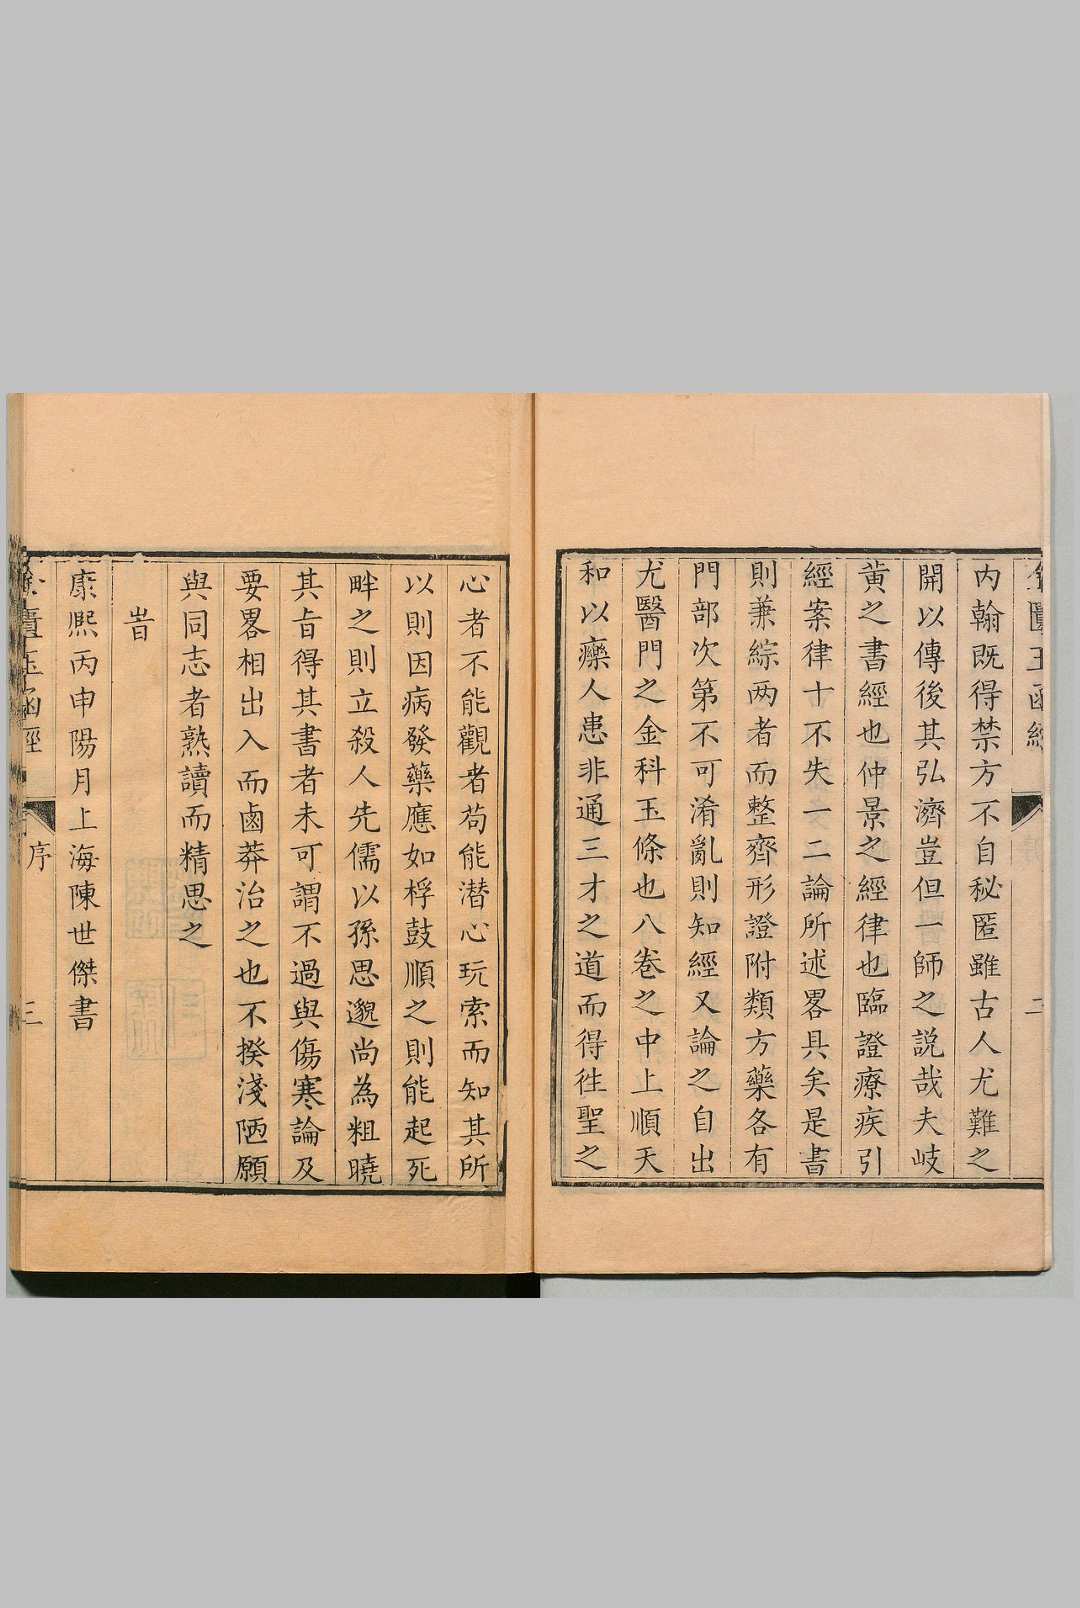 金匱玉函經
二
內翰既得禁方不自秘匿雖古人尤難之
開以傳後其弘濟豈但一師之説哉夫岐
黃之書經也仲景之經律也臨證療疾引
經案律十不失一二論所述畧具矣是書
則兼綜两者而整齊形證附類方藥各有
門部次第不可淆亂則知經又論之自出
尤醫門之金科玉條也八卷之中上順天
和以療人患非通三才之道而得徃聖之
心者不能觀者苟能潛心玩索而知其所
以則因病發藥應如桴鼓順之則能起死
畔之則立殺人先儒以孫思邈尚為粗曉
其旨得其書者未可謂不過與傷寒論及
要畧相出入而鹵莽治之也不揆淺陋願
與同志者熟讀而精思之
旹
康熙丙申陽月上海陳世傑書
金匱玉函經
序
三